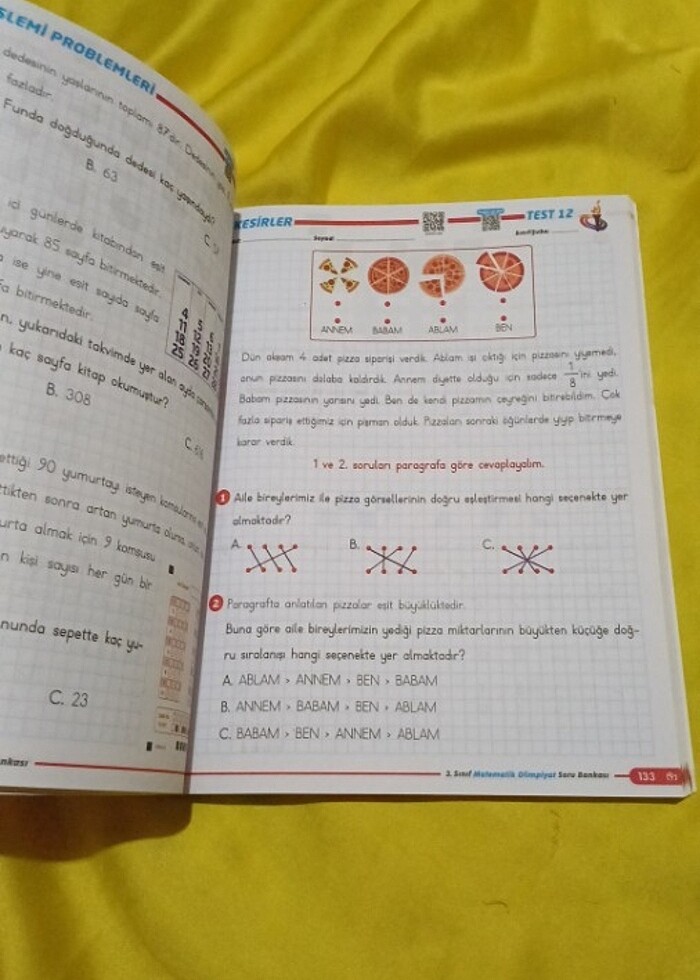 İŞLEMİ PROBLEMLERİ
dedesinin yaşlarının toplamı 87'dir. Dedesinin
fazladır.
Funda doğduğunda dedesi kaç yaşındaydı?
B. 63
C.
günlerde kitabından eşit
85 sayfa bitirmektedir.
ise yine eşit sayıda sayfa
bitirmektedir.
yukarıdaki takvimde yer alan ayda
kaç sayfa kitap okumuştur?
B. 308
C.
ettiği 90 yumurtayı isteyen komşularına
sonra artan yumurta olursa
almak için 9 komşusu
kişi sayısı her gün bir
sepette kaç yu-
C. 23
KESİRLER
TEST 12
Soyadı
Sınıf/Şube
ANNEM BABAM ABLAM BEN
Dün akşam 4 adet pizza siparişi verdik. Ablam işi çıktığı için pizzasını yiyemedi,
onun pizzasını dolaba kaldırdık. Annem diyette olduğu için sadece 1/8'ini yedi.
Babam pizzasının yarısını yedi. Ben de kendi pizzamın çeyreğini bitirebildim. Çok
fazla sipariş ettiğimiz için pişman olduk. Pizzaları sonraki öğünlerde yiyip bitirmeye
karar verdik.
1 ve 2. soruları paragrafa göre cevaplayalım.
1 Aile bireylerimiz ile pizza görsellerinin doğru eşleştirmesi hangi seçenekte yer
almaktadır?
A. B. C.
2 Paragrafta anlatılan pizzalar eşit büyüklüktedir.
Buna göre aile bireylerimizin yediği pizza miktarlarının büyükten küçüğe doğ-
ru sıralanışı hangi seçenekte yer almaktadır?
A. ABLAM > ANNEM > BEN > BABAM
B. ANNEM > BABAM > BEN > ABLAM
C. BABAM > BEN > ANNEM > ABLAM
3. Sınıf Matematik Olimpiyat Soru Bankası 133